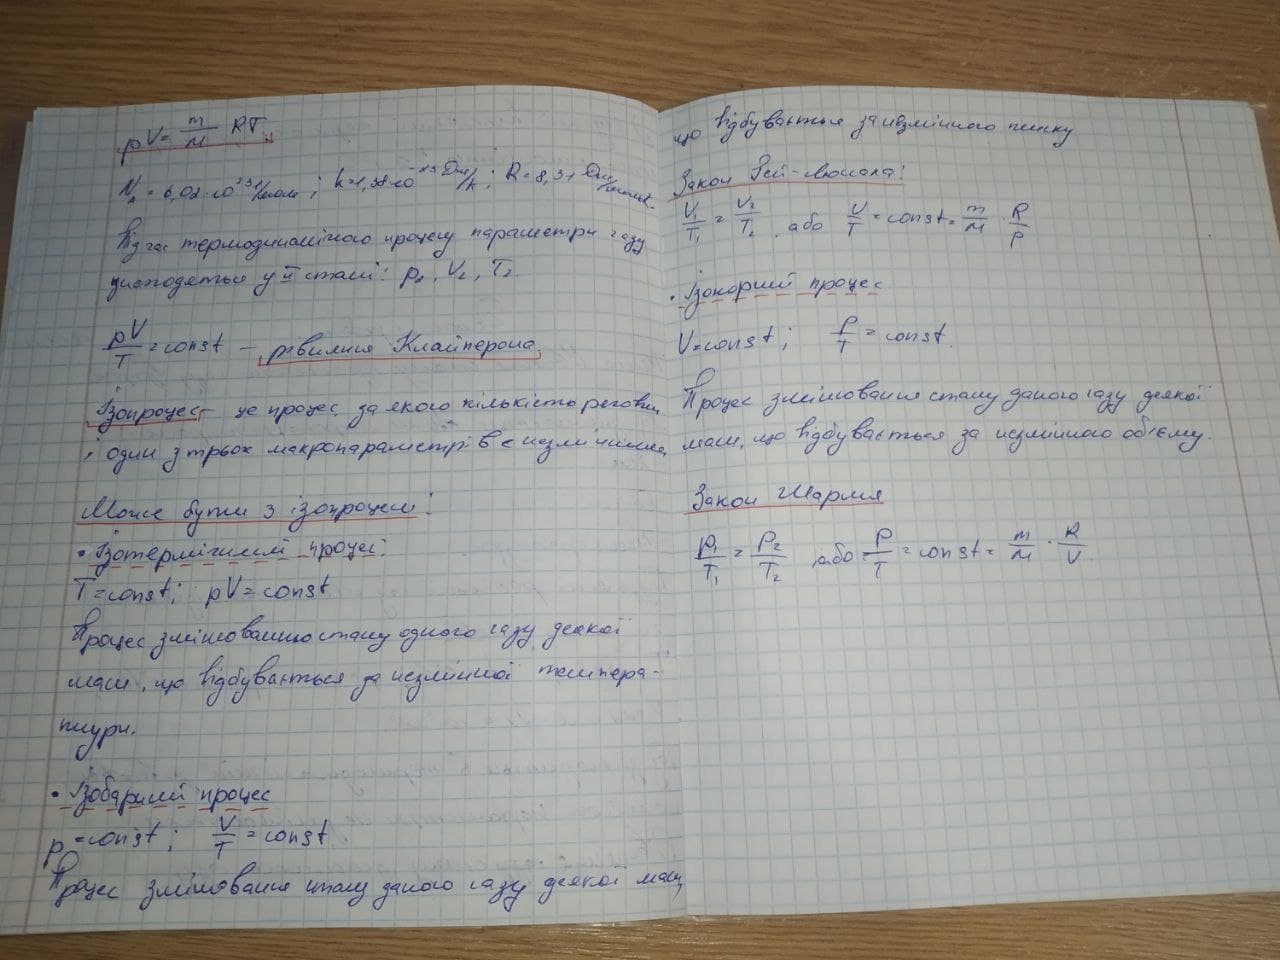 pV = m/M RT
Nₐ = 6,02·10²³ 1/моль; k = 1,38·10⁻²³ Дж/К; R = 8,31 Дж/моль·К.
Під час термодинамічного процесу параметри газу
у II стані: p₂, V₂, T₂
pV/T = const – рівняння Клайперона
Ізопроцес – це процес, за якого кількість речовин
і один з трьох макропараметрів є незмінними
Може бути 3 ізопроцеси:
• Ізотермічний процес:
T = const; pV = const
Процес змінювання стану одного газу деякої
маси, що відбувається за незмінної темпера-
тури.
• Ізобарний процес
p = const; V/T = const
Процес змінювання стану даного газу деякої маси,
що відбувається за незмінного тиску
Закон Гей-Люссака:
V₁/T₁ = V₂/T₂, або V/T = const = m/M · R/p
• Ізохорний процес
V = const; p/T = const.
Процес змінювання стану даного газу деякої
маси, що відбувається за незмінного об'єму.
Закон Шарля
p₁/T₁ = p₂/T₂, або p/T = const = m/M · R/V